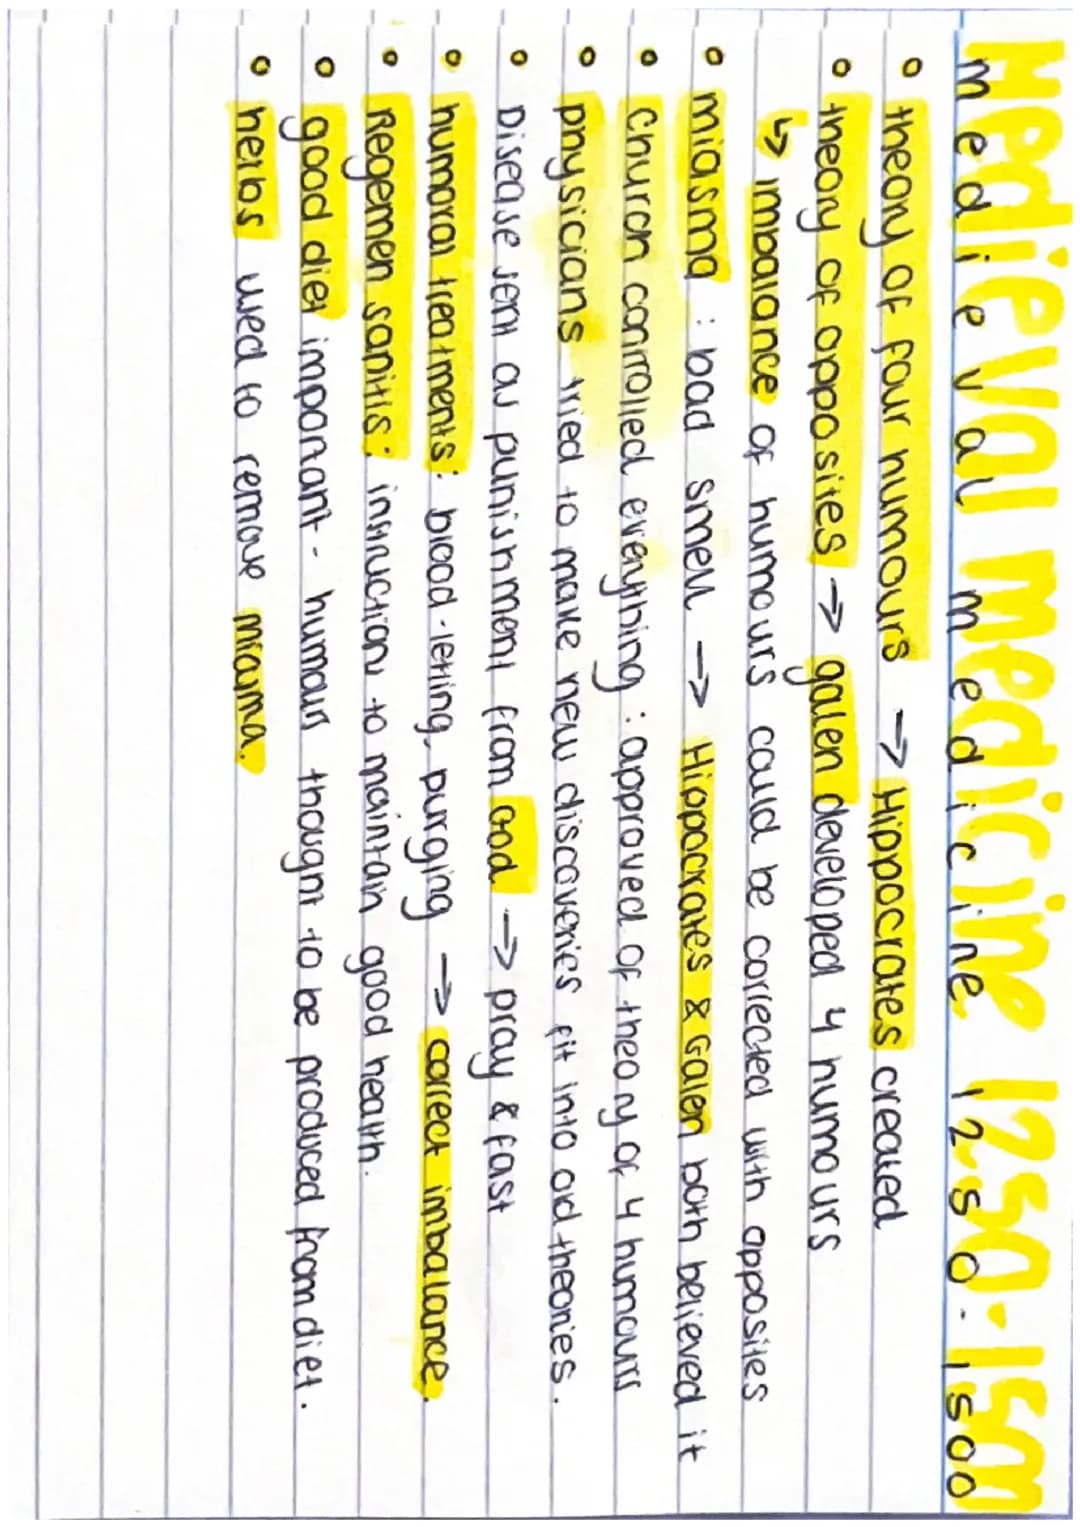 Medieval medicine 1250-1500
medieval medicine 1250-1500
theory of four humours → Hippocrates created
theory of opposites → galen developed 4 humours
↳ imbalance of humours could be corrected with opposites
miasma : bad smell → Hippocrates & Galen both believed it
Church controlled everything : approved of theory of 4 humours
physicians tried to make new discoveries fit into old theories.
Disease sent as punishment from God → pray & fast
humoral treatments: blood-letting, purging → correct imbalance.
Regemen sanitis: instructions to maintain good health.
good diet important - humours thought to be produced from diet.
herbs used to remove miasma.